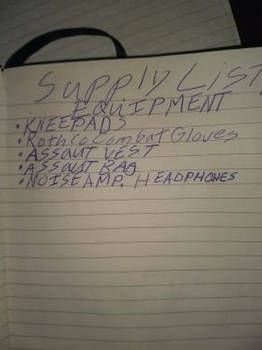 Supply List
EQUIPMENT
• KNEEPADS
• RothCo Combat Gloves
• ASSAUT VEST
• ASSAUT BAG
• NOISE AMP. HEADPHONES